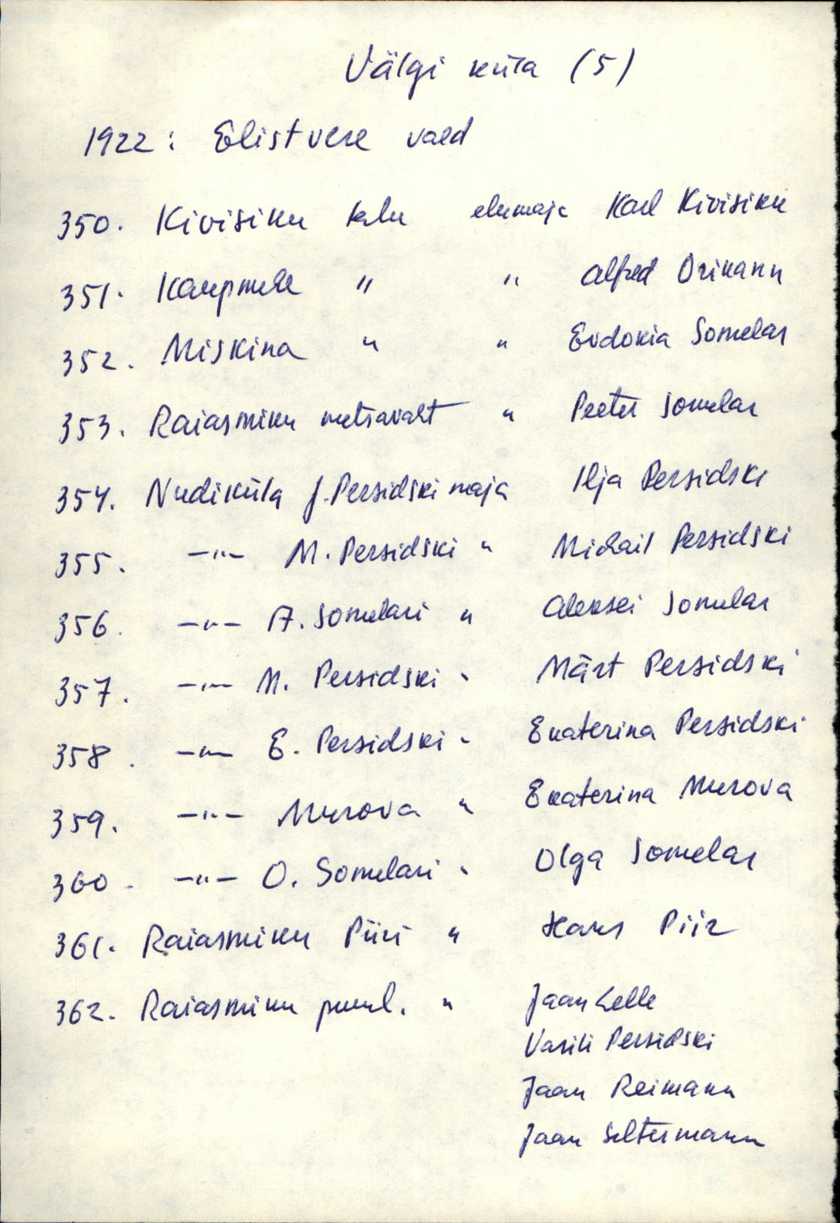 Välgi küla (5)
1922: Elistvere vald
350. Kivisiku talu elumaja Karl Kivisiku
351. Kaupmehe " " Alfred Orimann
352. Miskina " " Evdokia Somelar
353. Raiasmiku metsavaht " Peeter Somelar
354. Nudiküla J. Persidski maja Ilja Persidski
355. —"— M. Persidski " Michail Persidski
356. —"— A. Somelari " Aleksei Somelar
357. —"— M. Persidski " Märt Persidski
358. —"— E. Persidski " Ekaterina Persidski
359. —"— Murova " Ekaterina Murova
360. —"— O. Somelari " Olga Somelar
361. Raiasmiku Piiri " Hans Piir
362. Raiasmiku " Jaan Lelle
Vasili Persidski
Jaan Reimann
Jaan Seltermann